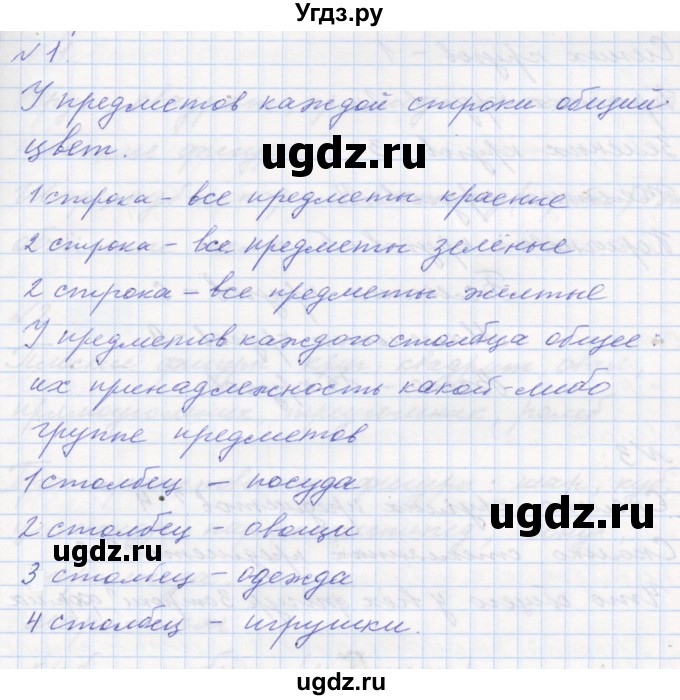 Угдз.ру
№1.
У предметов каждой строки общий
цвет.
ugdz.ru
1 строка – все предметы красные
2 строка – все предметы зелёные
2 строка – все предметы жёлтые
У предметов каждого столбца общее
их принадлежность какой-либо
группе предметов
1 столбец – посуда
ugdz.ru
2 столбец – овощи
ugdz.ru
3 столбец – одежда
4 столбец – игрушки.
ugdz.ru ugdz.ru